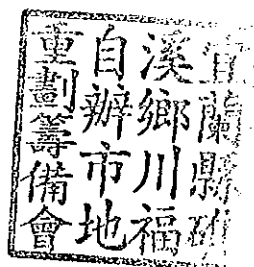 宜蘭縣礁
溪鄉川福
自辦市地
重劃籌備會